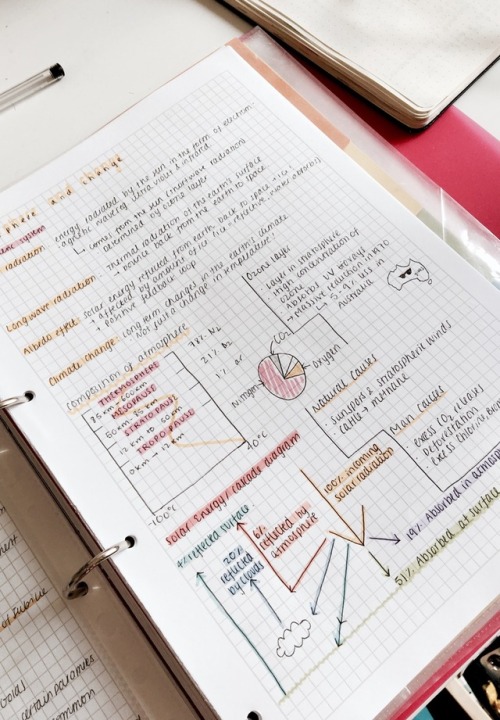 phere and change
radiation : energy radiated by the sun in the form of electrom-
agnetic waves eg ultra violet & infrared
↳ comes from the sun (shortwave radiation)
Determined by ozone layer
Long wave radiation : Thermal radiation of the earth's surface
→ bounce back from the earth to space
Albedo effect : solar energy reflected from earth back to space
→ affected by amount of ice (ice = reflective, water absorbs)
→ positive feedback loop
Climate change : long term changes in the earth's climate
Not just a change in temperature!
Composition of atmosphere
THERMOSPHERE
MESOPAUSE
STRATOPAUSE
12 km to 50km
TROPOPAUSE
0km → 12 km
-100°C
40°C
78% N2
21% O2
1% ar
Nitrogen
CO2
Oxygen
Ozone layer
Layer in stratosphere
High concentration of
ozone
Absorbs UV B rays
→ Massive reduction in 1970
↳ 5-9% less in
Australia
Natural causes
· sunspots & stratospheric winds
· cattle → methane
Man causes
· excess CO2 releases
· Deforestation
· excess chlorine,
Solar energy/cascade diagram
4% reflected surface
20%
reflected
by clouds
6%
reflected by
atmosphere
100% incoming
solar radiation
19% Absorbed in atmosp
51% Absorbed at surface
certain
common